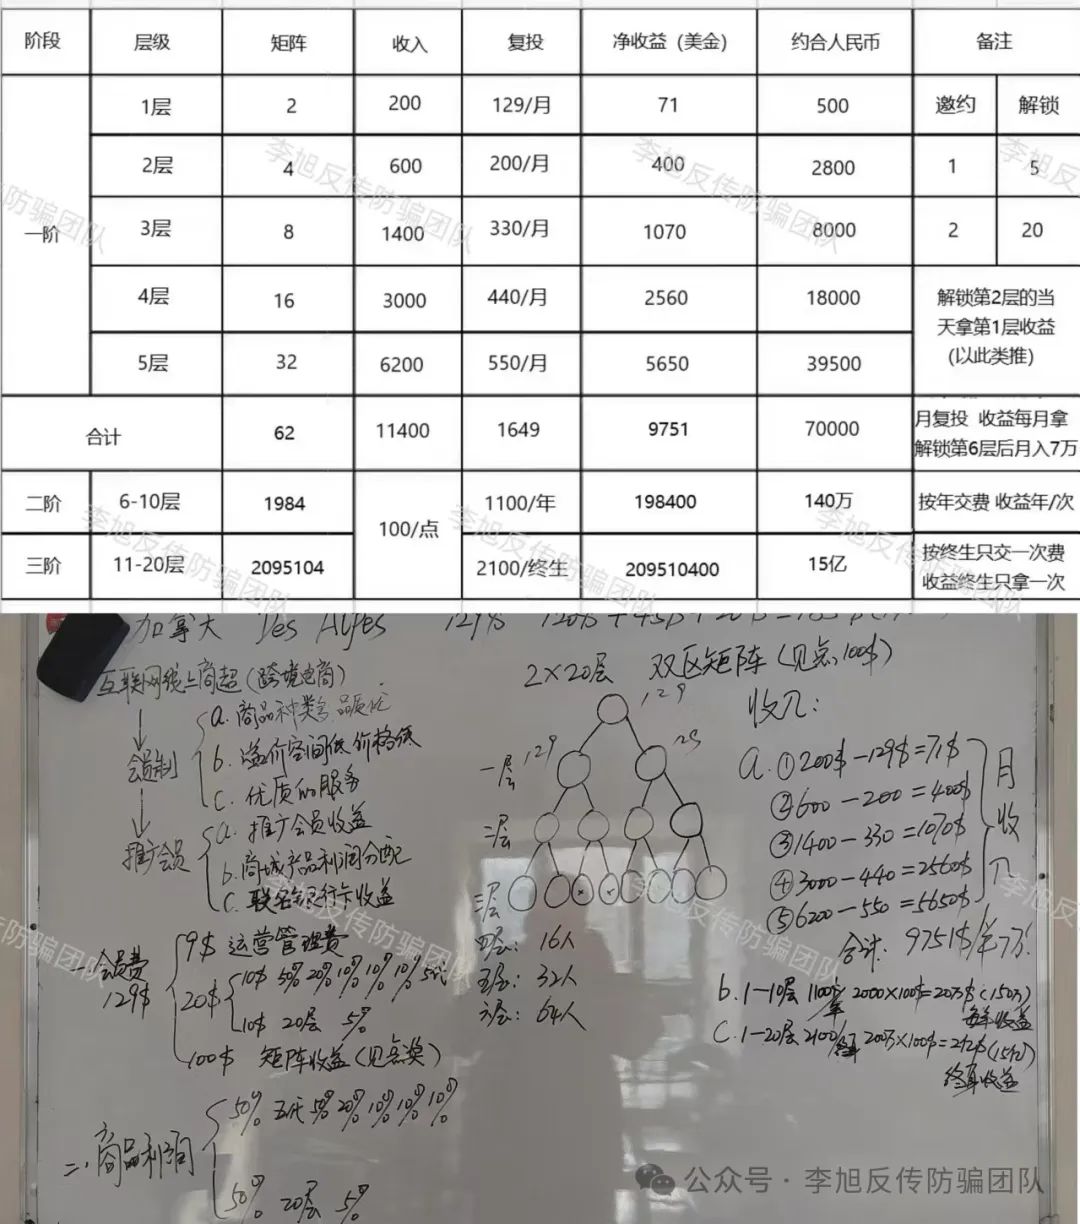 阶段 层级 矩阵 收入 复投 净收益（美金） 约合人民币 备注
一阶 1层 2 200 129/月 71 500 邀约 解锁
2层 4 600 200/月 400 2800 1 5
3层 8 1400 330/月 1070 8000 2 20
4层 16 3000 440/月 2560 18000 解锁第2层的当
天拿第1层收益
(以此类推)
5层 32 6200 550/月 5650 39500
合计 62 11400 1649 9751 70000 月复投 收益每月拿
解锁第6层后月入7万
二阶 6-10层 1984 100/点 1100/年 198400 140万 按年交费 收益年/次
三阶 11-20层 2095104 2100/终生 209510400 15亿 按终生只交一次费
收益终生只拿一次
李旭反传防骗团队
加拿大 129$
互联网线上商超（跨境电商）
会员制
a. 商品种类多品质优
b. 溢价空间低 价格低
c. 优质的服务
推广会员
a. 推广会员收益
b. 商城产品利润分配
c. 联名银行卡收益
一.会员费
129$
9$ 运营管理费
20$
10$ 50% 20% 10% 10% 10% 5代
10$ 20层 5%
100$ 矩阵收益（见点奖）
二、商品利润
50% 五代 50% 20% 10% 10% 10%
50% 20层 5%
2×20层 双区矩阵（见点100$）
129
一层 129 129
二层
三层
四层: 16人
五层: 32人
六层: 64人
收入:
a. ①200$-129$=71$
②600-200=400$
③1400-330=1070$
④3000-440=2560$
⑤6200-550=5650$
月收入
合计: 9751$/羊7万!
b. 1-10层 1100/年 2000×100$=20万$(150万)
每年收益
c. 1-20层 2100/终身 200万×100$=2亿$(15亿)
终身收益
公众号·李旭反传防骗团队